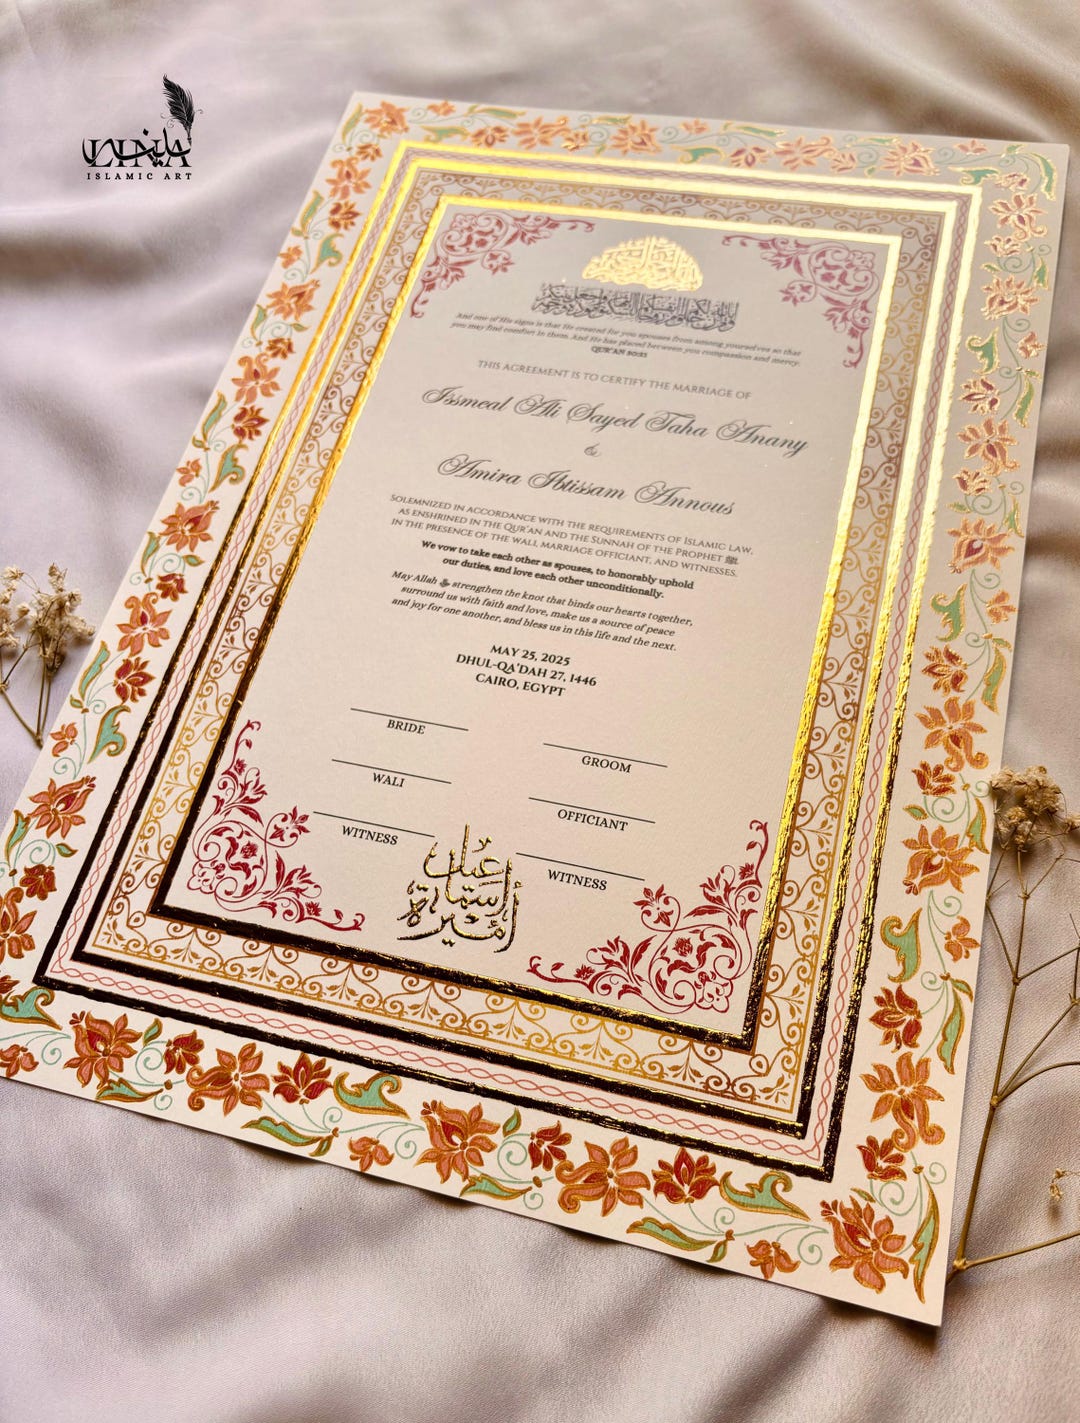 LINA
ISLAMIC ART
And one of His signs is that He created for you spouses from among yourselves so that
you may find comfort in them. And He has placed between you compassion and mercy.
QUR'AN 30:21
THIS AGREEMENT IS TO CERTIFY THE MARRIAGE OF
Issmeal Ali Sayed Taha Anany
&
Amira Ibtissam Annous
SOLEMNIZED IN ACCORDANCE WITH THE REQUIREMENTS OF ISLAMIC LAW,
AS ENSHRINED IN THE QUR'AN AND THE SUNNAH OF THE PROPHET ﷺ,
IN THE PRESENCE OF THE WALI, MARRIAGE OFFICIANT, AND WITNESSES.
We vow to take each other as spouses, to honorably uphold
our duties, and love each other unconditionally.
May Allah strengthen the knot that binds our hearts together,
surround us with faith and love, make us a source of peace
and joy for one another, and bless us in this life and the next.
MAY 25, 2025
DHUL-QA'DAH 27, 1446
CAIRO, EGYPT
BRIDE
GROOM
WALI
OFFICIANT
WITNESS
WITNESS
أميرة